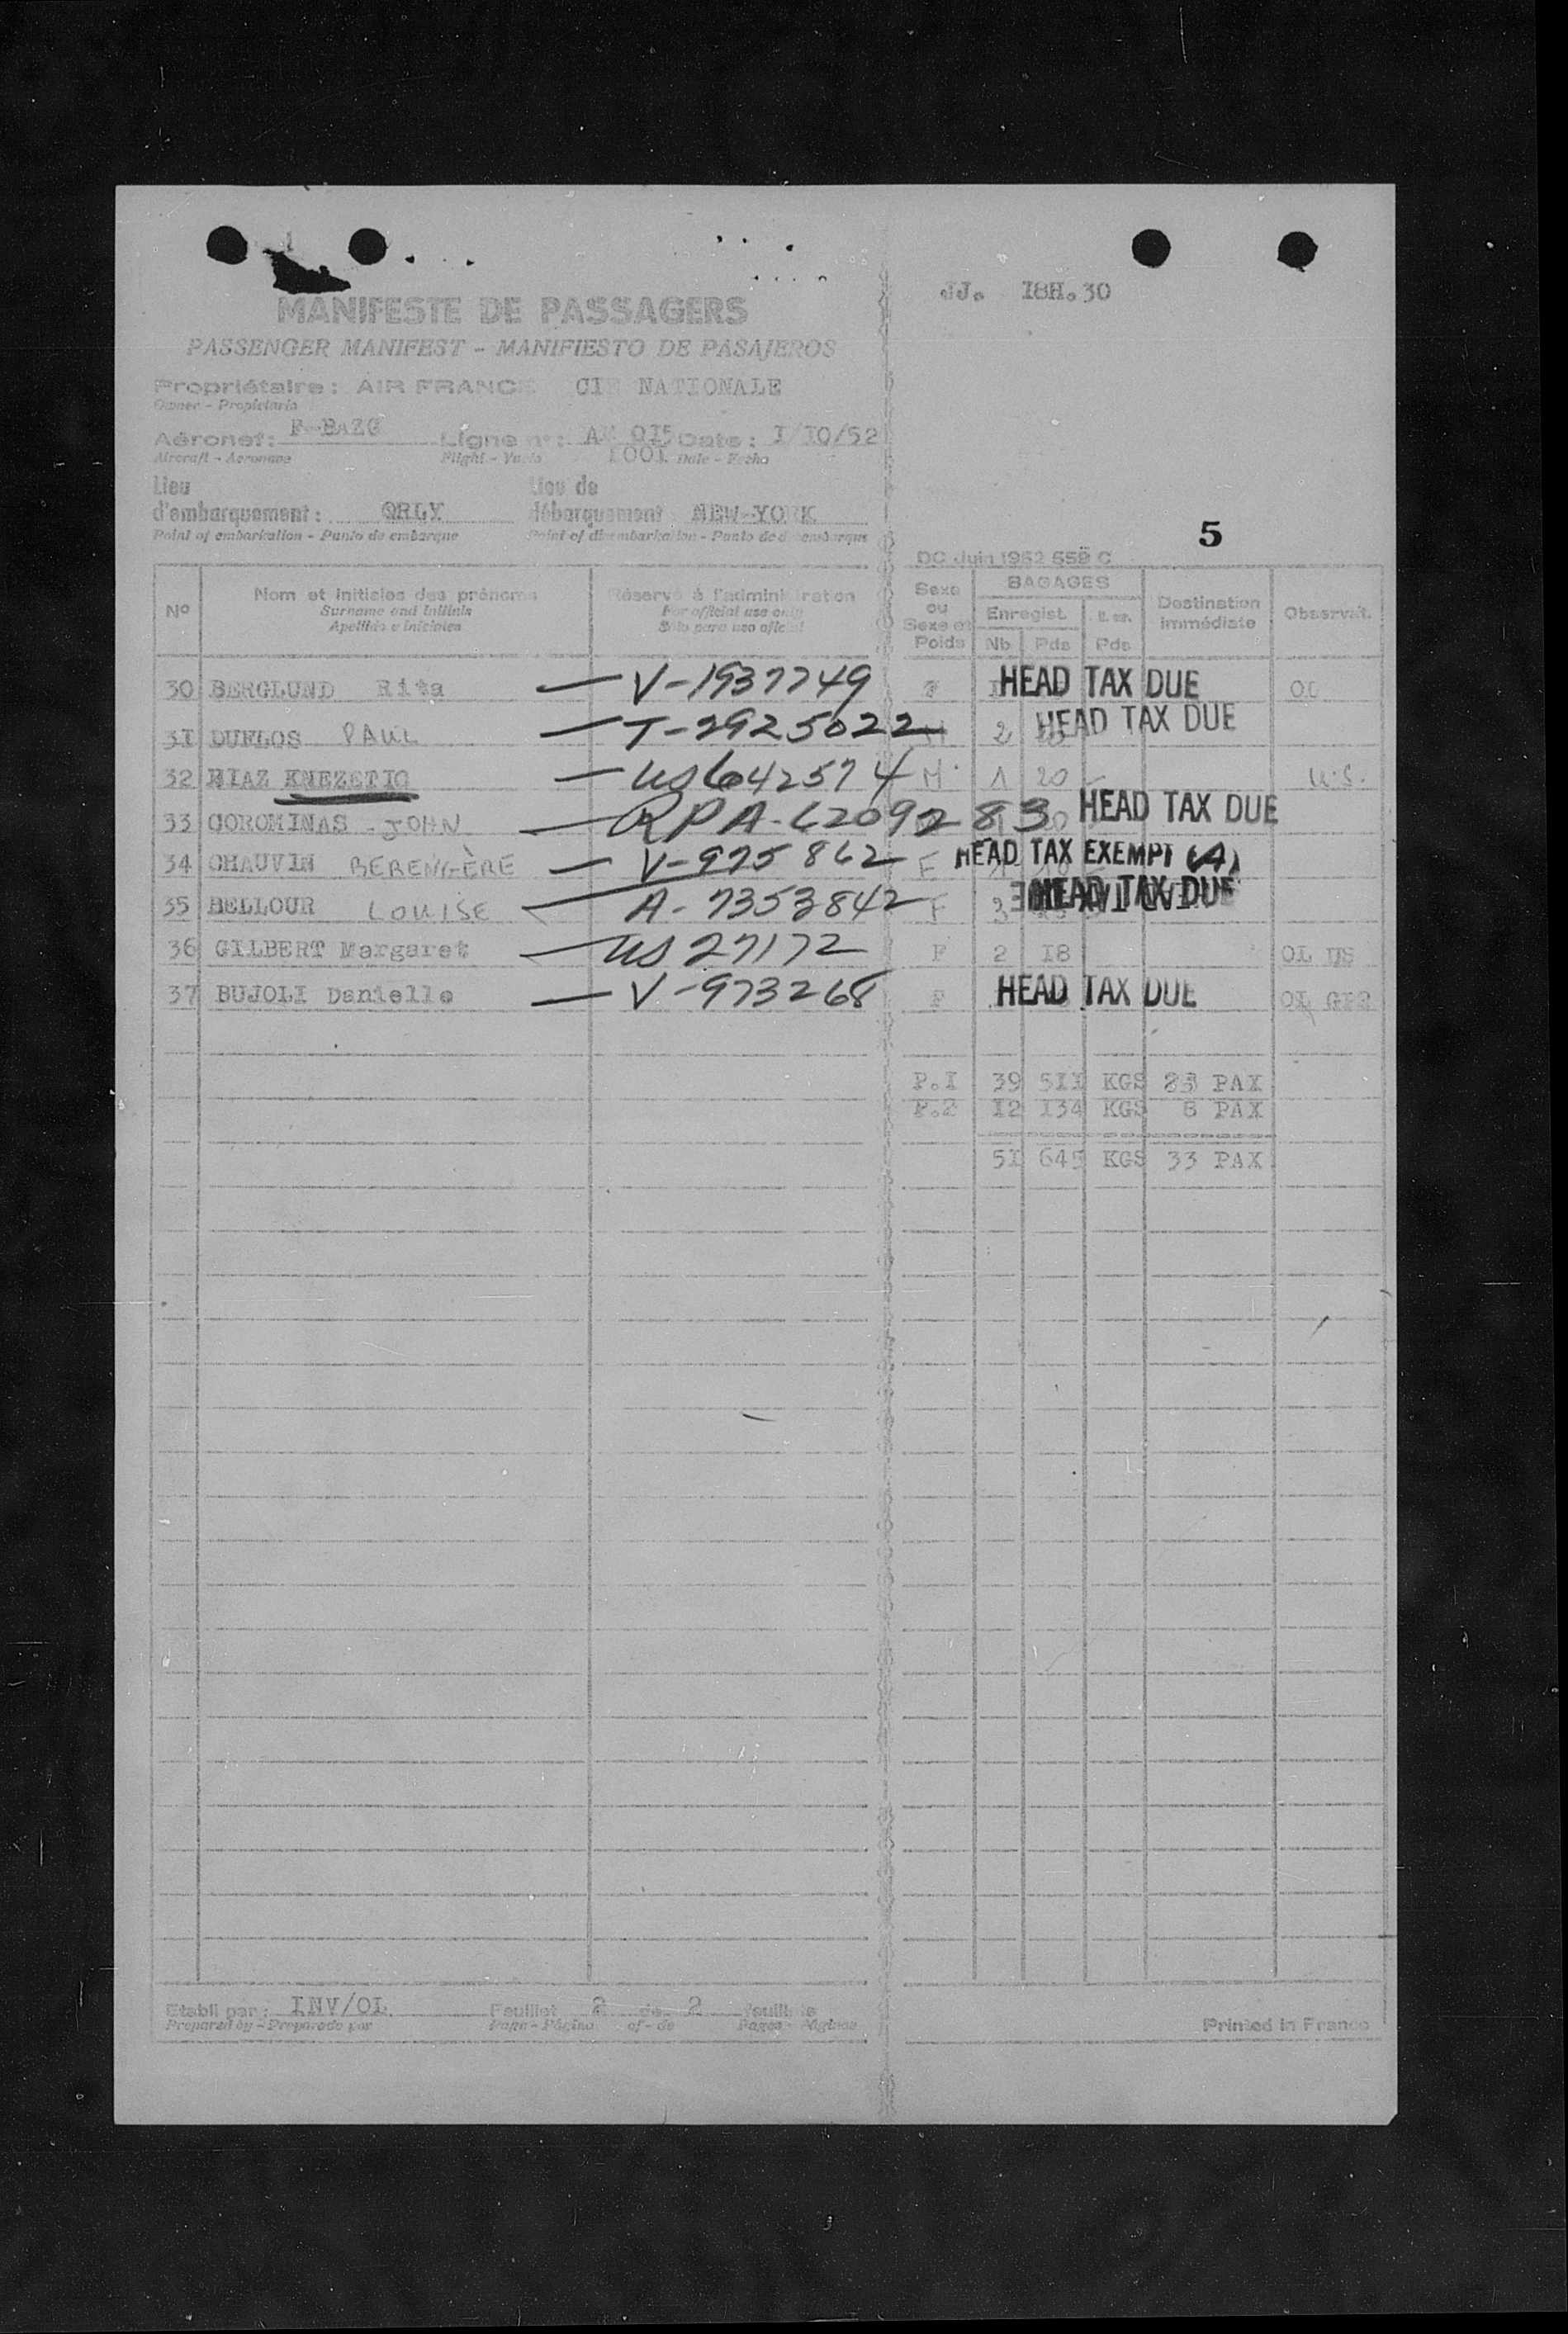 JJ. I8H.30
MANIFESTE DE PASSAGERS
PASSENGER MANIFEST - MANIFIESTO DE PASAJEROS
Propriétaire : AIR FRANCE CIE NATIONALE
Owner - Propietario
Aéronef : F-BAZG Ligne n° : AF 0I5 Date : I/I0/52
Aircraft - Aeronave Flight - Vuelo I00I Date - Fecha
Lieu d'embarquement : ORLY Lieu de débarquement NEW-YORK
Point of embarkation - Punto de embarque Point of disembarkation - Punto de desembarque
5
DC Juin 1952 559 C
N° Nom et initiales des prénoms Réservé à l'administration Sexe ou Sexe et Poids BAGAGES Destination immédiate Observat.
Surname and initials For official use only Enregist.
Apellido e iniciales Sólo para uso oficial Nb Pds Pds
30 BERGLUND Rita — V-1937749 F HEAD TAX DUE
31 DUFLOS PAUL — T-2925022 M 2 HEAD TAX DUE
32 KNEZETIC — US 642574 M 1 20 U.S.
33 COROMINAS - JOHN — RPA-6209283 HEAD TAX DUE
34 CHAUVIN BERENGÈRE — V-975862 F 1 HEAD TAX EXEMPT (A)
35 BELLOUR LOUISE — A-7353842 F HEAD TAX DUE
36 GILBERT Margaret — US 27172 F 2 I8 OL US
37 BUJOLI Danielle — V-973268 F HEAD TAX DUE OL
P.I 39 5II KGS PAX
P.2 I2 I34 KGS 8 PAX
5I 645 KGS 33 PAX
Etabli par : INV/OL Feuillet 2 de 2 feuillets
Prepared by - Preparado por Page - Página of - de Pages - Páginas
Printed in France